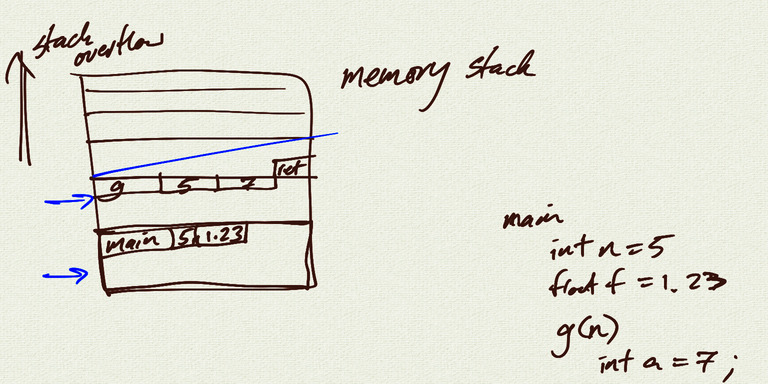 stack
overflow
memory stack
ret
g 5 7
main 5 1.23
main
int n = 5
float f = 1.23
g(n)
int a = 7;